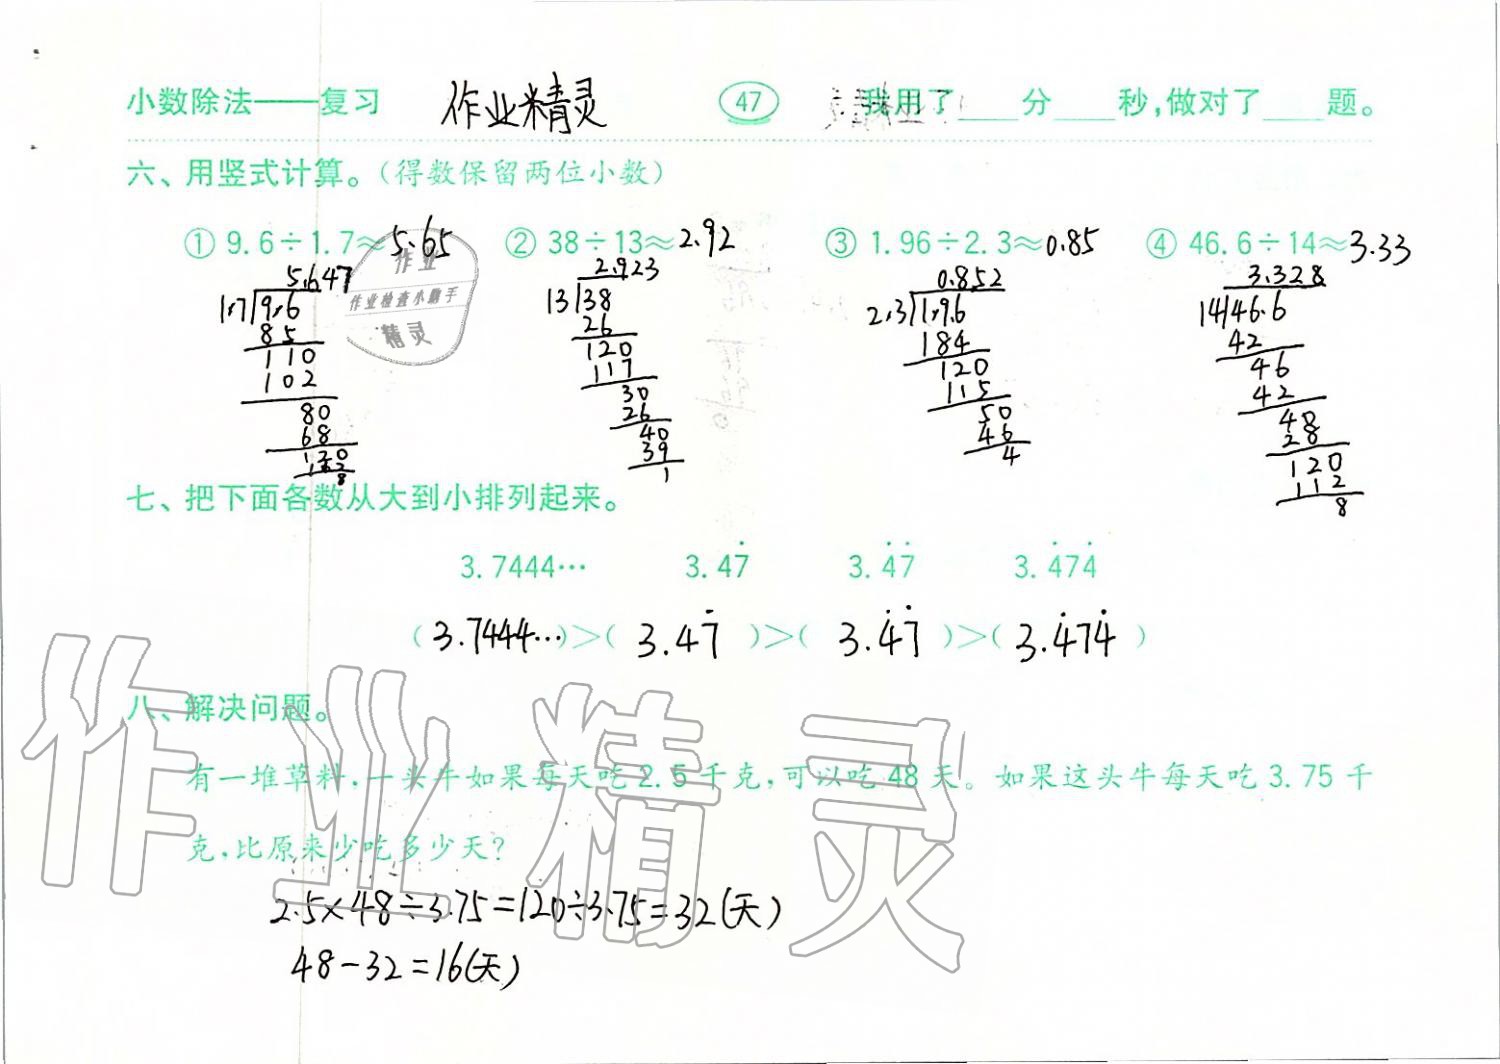 小数除法——复习 作业精灵 47 我用了____分____秒,做对了____题。
六、用竖式计算。(得数保留两位小数)
① 9.6÷1.7≈5.65 ② 38÷13≈2.92 ③ 1.96÷2.3≈0.85 ④ 46.6÷14≈3.33
作业
作业检查小助手
精灵
5.647
1.7 9.6
85
110
102
80
68
120
8
2.923
13 38
26
120
117
30
26
40
39
1
0.852
2.3 1.96
184
120
115
50
46
4
3.328
14 46.6
42
46
42
48
28
120
112
8
七、把下面各数从大到小排列起来。
3.7444… 3.47̇ 3.4̇7̇ 3.4̇74̇
(3.7444…)>(3.47̇)>(3.4̇7̇)>(3.4̇74̇)
八、解决问题。
有一堆草料,一头牛如果每天吃2.5千克,可以吃48天。如果这头牛每天吃3.75千
克,比原来少吃多少天?
2.5×48÷3.75=120÷3.75=32(天)
48-32=16(天)
作业精灵